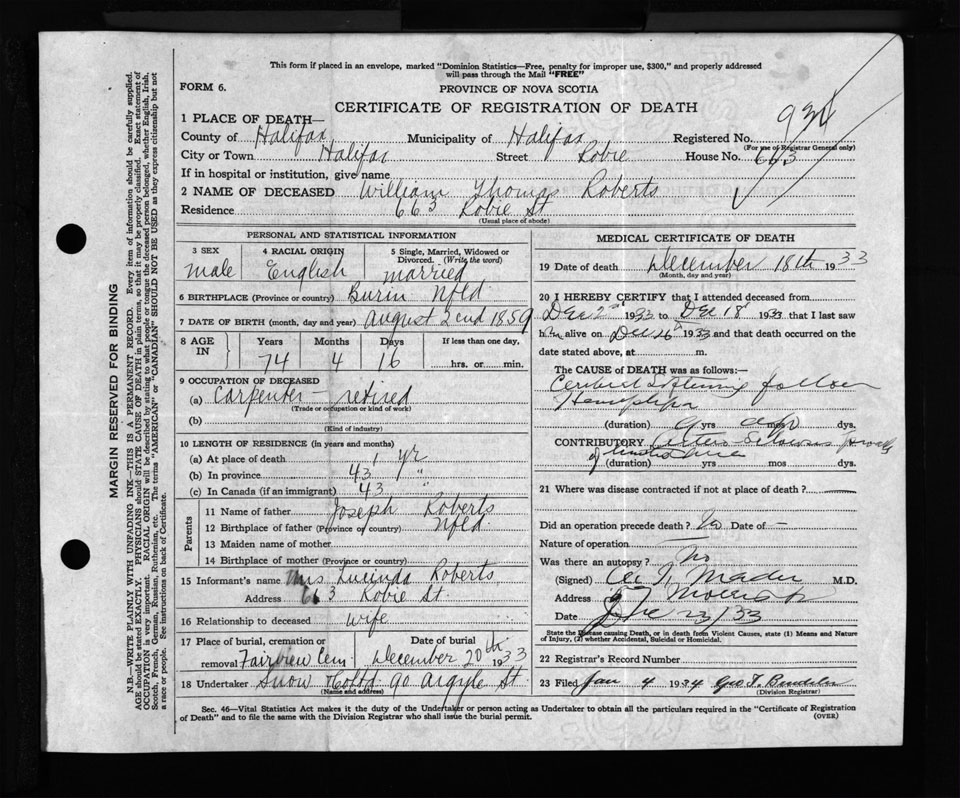 This form if placed in an envelope, marked "Dominion Statistics—Free, penalty for improper use, $300," and properly addressed
will pass through the Mail "FREE"
FORM 6.
PROVINCE OF NOVA SCOTIA
CERTIFICATE OF REGISTRATION OF DEATH
1 PLACE OF DEATH—
County of Halifax Municipality of Halifax Registered No.
(For use of Registrar General only)
City or Town Halifax Street Robie House No. 663
If in hospital or institution, give name
2 NAME OF DECEASED William Thomas Roberts
Residence 663 Robie St
(Usual place of abode)
PERSONAL AND STATISTICAL INFORMATION
3 SEX male
4 RACIAL ORIGIN English
5 Single, Married, Widowed or Divorced. (Write the word) married
6 BIRTHPLACE (Province or country) Burin Nfld
7 DATE OF BIRTH (month, day and year) August 2nd 1859
8 AGE IN Years Months Days If less than one day,
74 4 16 hrs. or min.
9 OCCUPATION OF DECEASED
(a) Carpenter — retired
(Trade or occupation or kind of work)
(b)
(Kind of industry)
10 LENGTH OF RESIDENCE (in years and months)
(a) At place of death 1 yr
(b) In province 43 "
(c) In Canada (if an immigrant) 43 "
Parents
11 Name of father Joseph Roberts
12 Birthplace of father (Province or country) Nfld
13 Maiden name of mother
14 Birthplace of mother (Province or country)
15 Informant's name Mrs Lucinda Roberts
Address 663 Robie St
16 Relationship to deceased wife
17 Place of burial, cremation or removal Fairview Cem Date of burial December 20th 1933
18 Undertaker Snow & Co Ltd 90 Argyle St
(Name and address)
MEDICAL CERTIFICATE OF DEATH
19 Date of death December 18th 1933
(Month, day and year)
20 I HEREBY CERTIFY that I attended deceased from
Dec 2 1933 to Dec 18 1933 that I last saw
him alive on Dec 1933 and that death occurred on the
date stated above, at m.
The CAUSE of DEATH was as follows:—
Cerebral Softening
(duration) yrs mos dys.
CONTRIBUTORY
(duration) yrs mos dys.
21 Where was disease contracted if not at place of death?
Did an operation precede death? No Date of —
Nature of operation —
Was there an autopsy? No
(Signed) Mader M.D.
Address 57 Morris St
Date Dec 23/33
State the Disease causing Death, or in death from Violent Causes, state (1) Means and Nature
of Injury, (2) whether Accidental, Suicidal or Homicidal.
22 Registrar's Record Number
23 Filed Jan 4 1934 Geo T.
(Division Registrar)
Sec. 46—Vital Statistics Act makes it the duty of the Undertaker or person acting as Undertaker to obtain all the particulars required in the "Certificate of Registration
of Death" and to file the same with the Division Registrar who shall issue the burial permit.
(OVER)
MARGIN RESERVED FOR BINDING
N.B.—WRITE PLAINLY WITH UNFADING INK—THIS IS A PERMANENT RECORD. Every item of information should be carefully supplied.
AGE should be stated EXACTLY. PHYSICIANS should STATE CAUSE OF DEATH in plain terms, so that it may be properly classified. Exact statement of
OCCUPATION is very important. RACIAL ORIGIN will be described by stating to what people or tongue the deceased person belonged, whether English, Irish,
Scotch, French, German, Russian, Ruthenian, etc. The terms "AMERICAN" or "CANADIAN" SHOULD NOT BE USED as they express citizenship but not
a race or people. See instructions on back of Certificate.